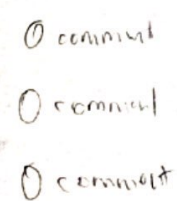 O comment
O comment
O comment